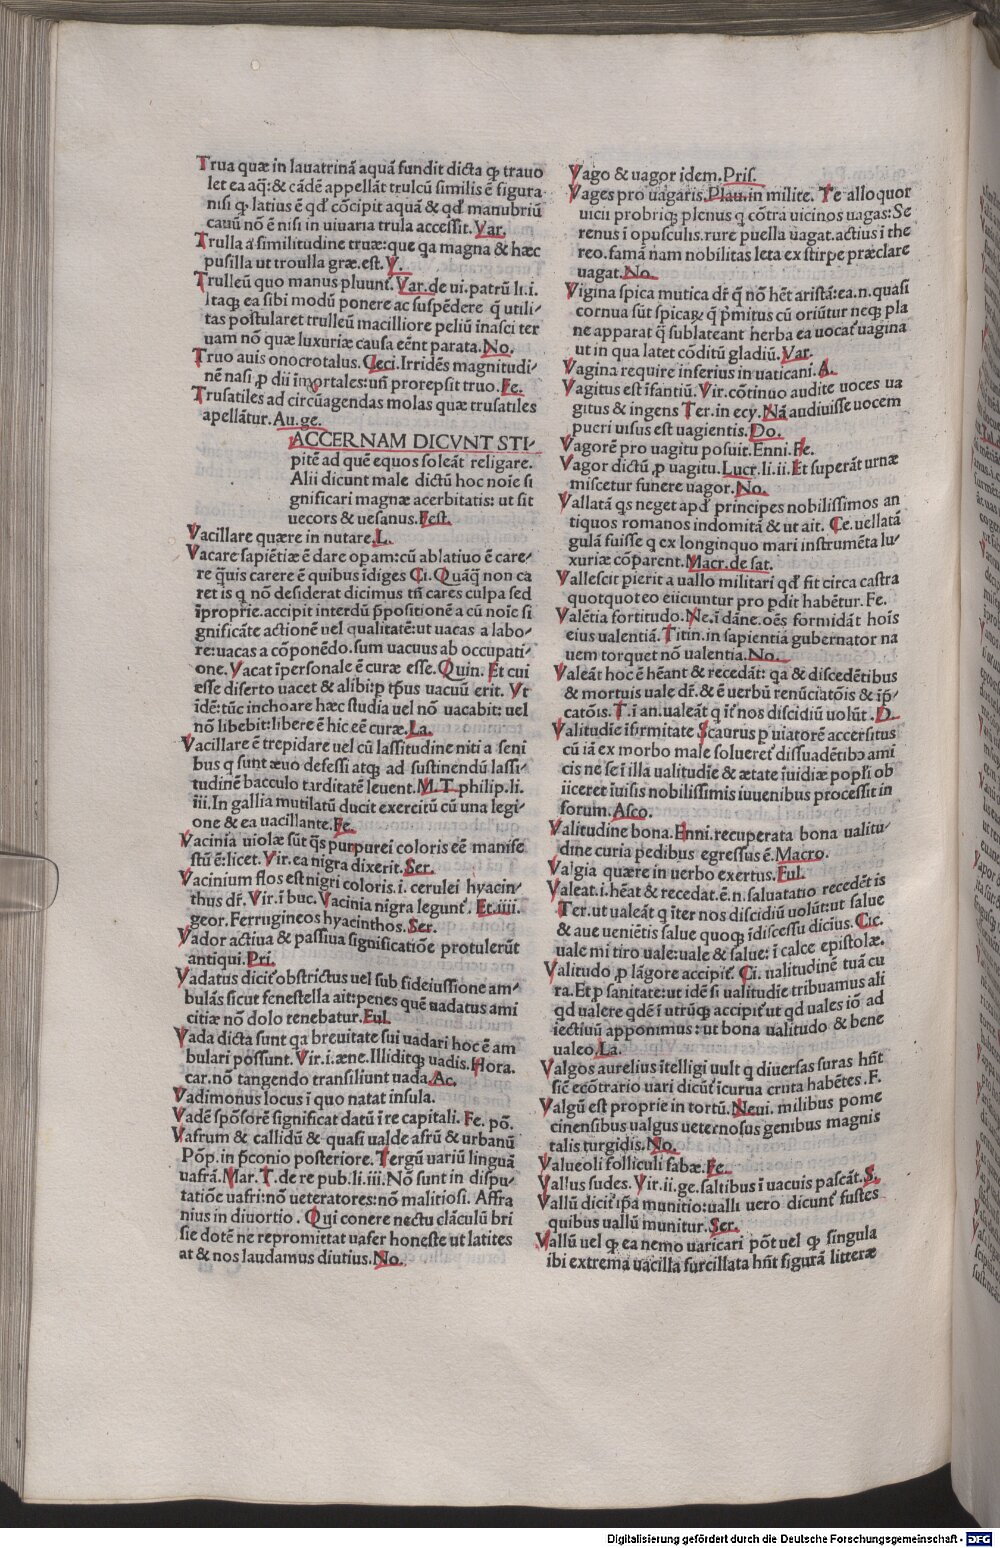 Trua quæ in lauatrinā aquā fundit dicta ꝙ trauo
let ea aq̄:& cādē appellāt trulcū similis ē figura
nisi ꝙ latius ē qđ cōcipit aquā & qđ manubriū
cauū nō ē nisi in uiuaria trula accessit.Var.
Trulla a similitudine truæ:que qa magna & hæc
pusilla ut troulla græ.est.V.
Trulleū quo manus pluunt̄.Var.de ui.patrū li.i.
Itaqꝫ ea sibi modū ponere ac suspēdere q̄ utili⸗
tas postularet trulleū macilliore peliū inasci ter
uam nō quæ luxuriæ causa eēnt parata.No.
Truo auis onocrotalus.Ceci.Irridēs magnitudi⸗
nē nasi ꝓ dii imortales:un̄ prorepsit truo.Fe.
Trusatiles ad circūagendas molas quæ trusatiles
apellātur.Au.ge.
ACCERNAM DICVNT STI⸗
pitē ad quē equos soleāt religare.
Alii dicunt male dictū hoc noie si
gnificari magnæ acerbitatis: ut sit
uecors & uesanus.Fest.
Vacillare quære in nutare.L.
Vacare sapiētiæ ē dare opam:cū ablatiuo ē care⸗
re q̄uis carere ē quibus īdiges Ci.Quāq̄ non ca
ret is q nō desiderat dicimus tn̄ cares culpa sed
īproprie.accipit interdū p̄positionē a cū noie si
gnificāte actionē uel qualitatē:ut uacas a labo⸗
re:uacas a cōponēdo.sum uacuus ab occupati⸗
one.Vacat īpersonale ē curæ esse.Quin.Et cui
esse diserto uacet & alibi:p tp̄us vacuū erit. Vt
īdē:tūc inchoare hæc studia uel nō uacabit: uel
nō libebit:libere ē hic eē curæ.La.
Vacillare ē trepidare uel cū lassitudine niti a seni
bus q sunt æuo defessi atqꝫ ad sustinendū lassi⸗
tudinē bacculo tarditatē leuent.M.T.philip.li.
iii.In gallia mutilatū ducit exercitū cū una legi⸗
one & ea uacillante.Fe.
Vacinia uiolæ sūt q̄s purpurei coloris eē manife
stū ē:licet.Vir.ea nigra dixerit.Ser.
Vacinium flos est nigri coloris.i.cerulei hyacin⸗
thus dr̄.Vir.ī buc.Vacinia nigra legunt̄. Et.iiii.
geor.Ferrugineos hyacinthos.Ser.
Vador actiua & passiua significatiōe protulerūt
antiqui.Pri.
Vadatus dicit̄ obstrictus uel sub fideiussione am⸗
bulās sicut fenestella ait:penes quē uadatus ami
citiæ nō dolo tenebatur.Ful.
Vada dicta sunt qa breuitate sui uadari hoc ē am
bulari possunt.Vir.i.æne.Illiditqꝫ uadis.Hora.
car.nō tangendo transiliunt uada.Ac.
Vadimonus locus ī quo natat insula.
Vadē spōsorē significat datū ī re capitali. Fe.pō.
Vafrum & callidū & quasi ualde afrū & urbanū
Pōp.in p̄conio posteriore.Tergū uariū linguā
uafrā.Mar.T.de re pub.li.iii.Nō sunt in dispu⸗
tatiōe uafri:nō ueteratores:nō malitiosi. Affra
nius in diuortio. Qui conere nectu clāculū bri
sie dotē ne repromittat uafer honeste ut latites
at & nos laudamus diutius.No.
Vago & uagor idem.Pris.
Vages pro uagaris.Plau.in milite. Te allo quor
uicii probriqꝫ plenus q cōtra uicinos uagas:Se
renus ī opusculis.rure puella uagat.actius ī the
reo.famā nam nobilitas leta ex stirpe præclare
uagat.No.
Vigina spica mutica dr̄ q̄ nō hēt aristā:ea.n.quasi
cornua sūt spicaꝝ q̄ p̄mitus cū oriūtur neqꝫ pla
ne apparat q̄ sublateant herba ea uocat̄ uagina
ut in qua latet cōditū gladiū.Var.
Vagina require inferius in uaticani.A.
Vagitus est īfantiū.Vir.cōtinuo audite uoces ua
gitus & ingens Ter.in ecy.Nā audiuisse uocem
pueri uisus est uagientis.Do.
Vagorē pro uagitu posuit.Enni.Fe.
Vagor dictū ꝓ uagitu.Lucr.li.ii.Et superāt urnæ
miscetur funere uagor.No.
Vallatā qs neget apđ principes nobilissimos an
tiquos romanos indomitā & ut ait. Ce.uellatā
gulā fuisse q ex longinquo mari instrumēta lu⸗
xuriæ cōparent.Macr.de sat.
Vallescit pierit a uallo militari qđ fit circa castra
quotquot eo eiiciuntur pro pdit habētur. Fe.
Valētia fortitudo.Ne.ī dāne.oēs formidāt hoīs
eius ualentiā.Titin.in sapientiā gubernator na
uem torquet nō ualentia.No.
Valeāt hoc ē hēant & recedāt: qa & discedētibus
& mortuis uale dr̄.& ē uerbū renūciatōis & īp̄⸗
catōis.T.ī an.ualeāt q īt̄ nos discidiū uolūt.D.
Valitudie īfirmitate Scaurus p uiatorē accersitus
cū iā ex morbo male solueret̄ dissuadētibꝫ ami
cis ne se ī illa ualitudie & ætate īuidiæ popl̄i ob
iiceret iuisis nobilissimis iuuenibus processit in
forum.Asco.
Valitudine bona.Enni.recuperata bona ualitu⸗
dine curia pedibus egressus ē.Macro.
Valgia quære in uerbo exertus.Ful.
Valeat.i.hēat & recedat.ē.n.saluatatio recedēt is
Ter.ut ualeāt q īter nos discidiū uolūt:ut salue
& aue ueniētis salue quoqꝫ īdiscessu dicius.Cic.
uale mi tiro uale:uale & salue: ī calce epistolæ.
Valitudo ꝓ lāgore accipit̄. Ci. ualitudinē tuā cu
ra.Et ꝑ sanitate:ut idē si ualitudie tribuamus ali
qd ualere qdē ī utrūqꝫ accipit̄ ut qd uales iō ad
iectiuū apponimus: ut bona ualitudo & bene
ualeo.La.
Valgos aurelius itelligi uult q diuersas suras hn̄t
siē ecōtrario uari dicūt̄ īcurua crura habētes.F.
Valgū est proprie in tortū. Neui. milibus pome
cinensibus ualgus ueternosus genibus magnis
talis turgidis.No.
Valueoli folliculi fabæ.Fe.
Vallus sudes.Vir.ii.ge.saltibus ī uacuis pascāt.S.
Vallū dicit̄ ip̄a munitio:ualli uero dicunt̄ fustes
quibus uallū munitur.Ser.
Vallū uel ꝙ ea nemo uaricari pōt uel ꝙ singula
ibi extrema uacilla furcillata hn̄t figurā litteræ
Digitalisierung gefördert durch die Deutsche Forschungsgemeinschaft - DFG